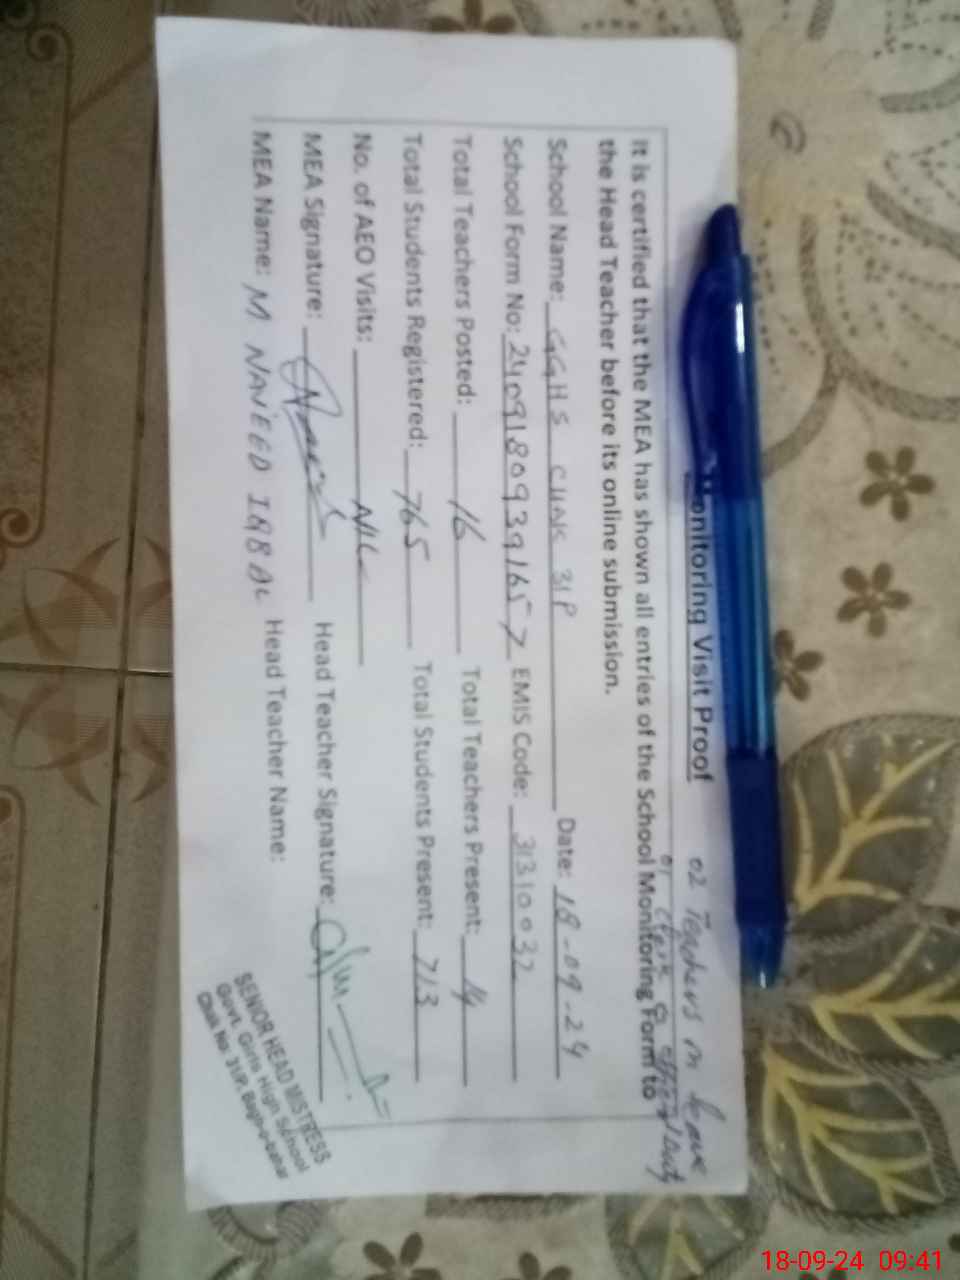 Monitoring Visit Proof
02 Teachers on leave
01 Clerk on official duty
It is certified that the MEA has shown all entries of the School Monitoring Form to
the Head Teacher before its online submission.
School Name: GGHS CHAK 31P Date: 18-09-24
School Form No: 24091809391657 EMIS Code: 31310032
Total Teachers Posted: 16 Total Teachers Present: 14
Total Students Registered: 765 Total Students Present: 713
No. of AEO Visits: NIL
MEA Signature: Head Teacher Signature:
MEA Name: M NAVEED IQBAL Head Teacher Name:
SENIOR HEAD MISTRESS
Govt. Girls High School
Chak No. 31/P
18-09-24 09:41